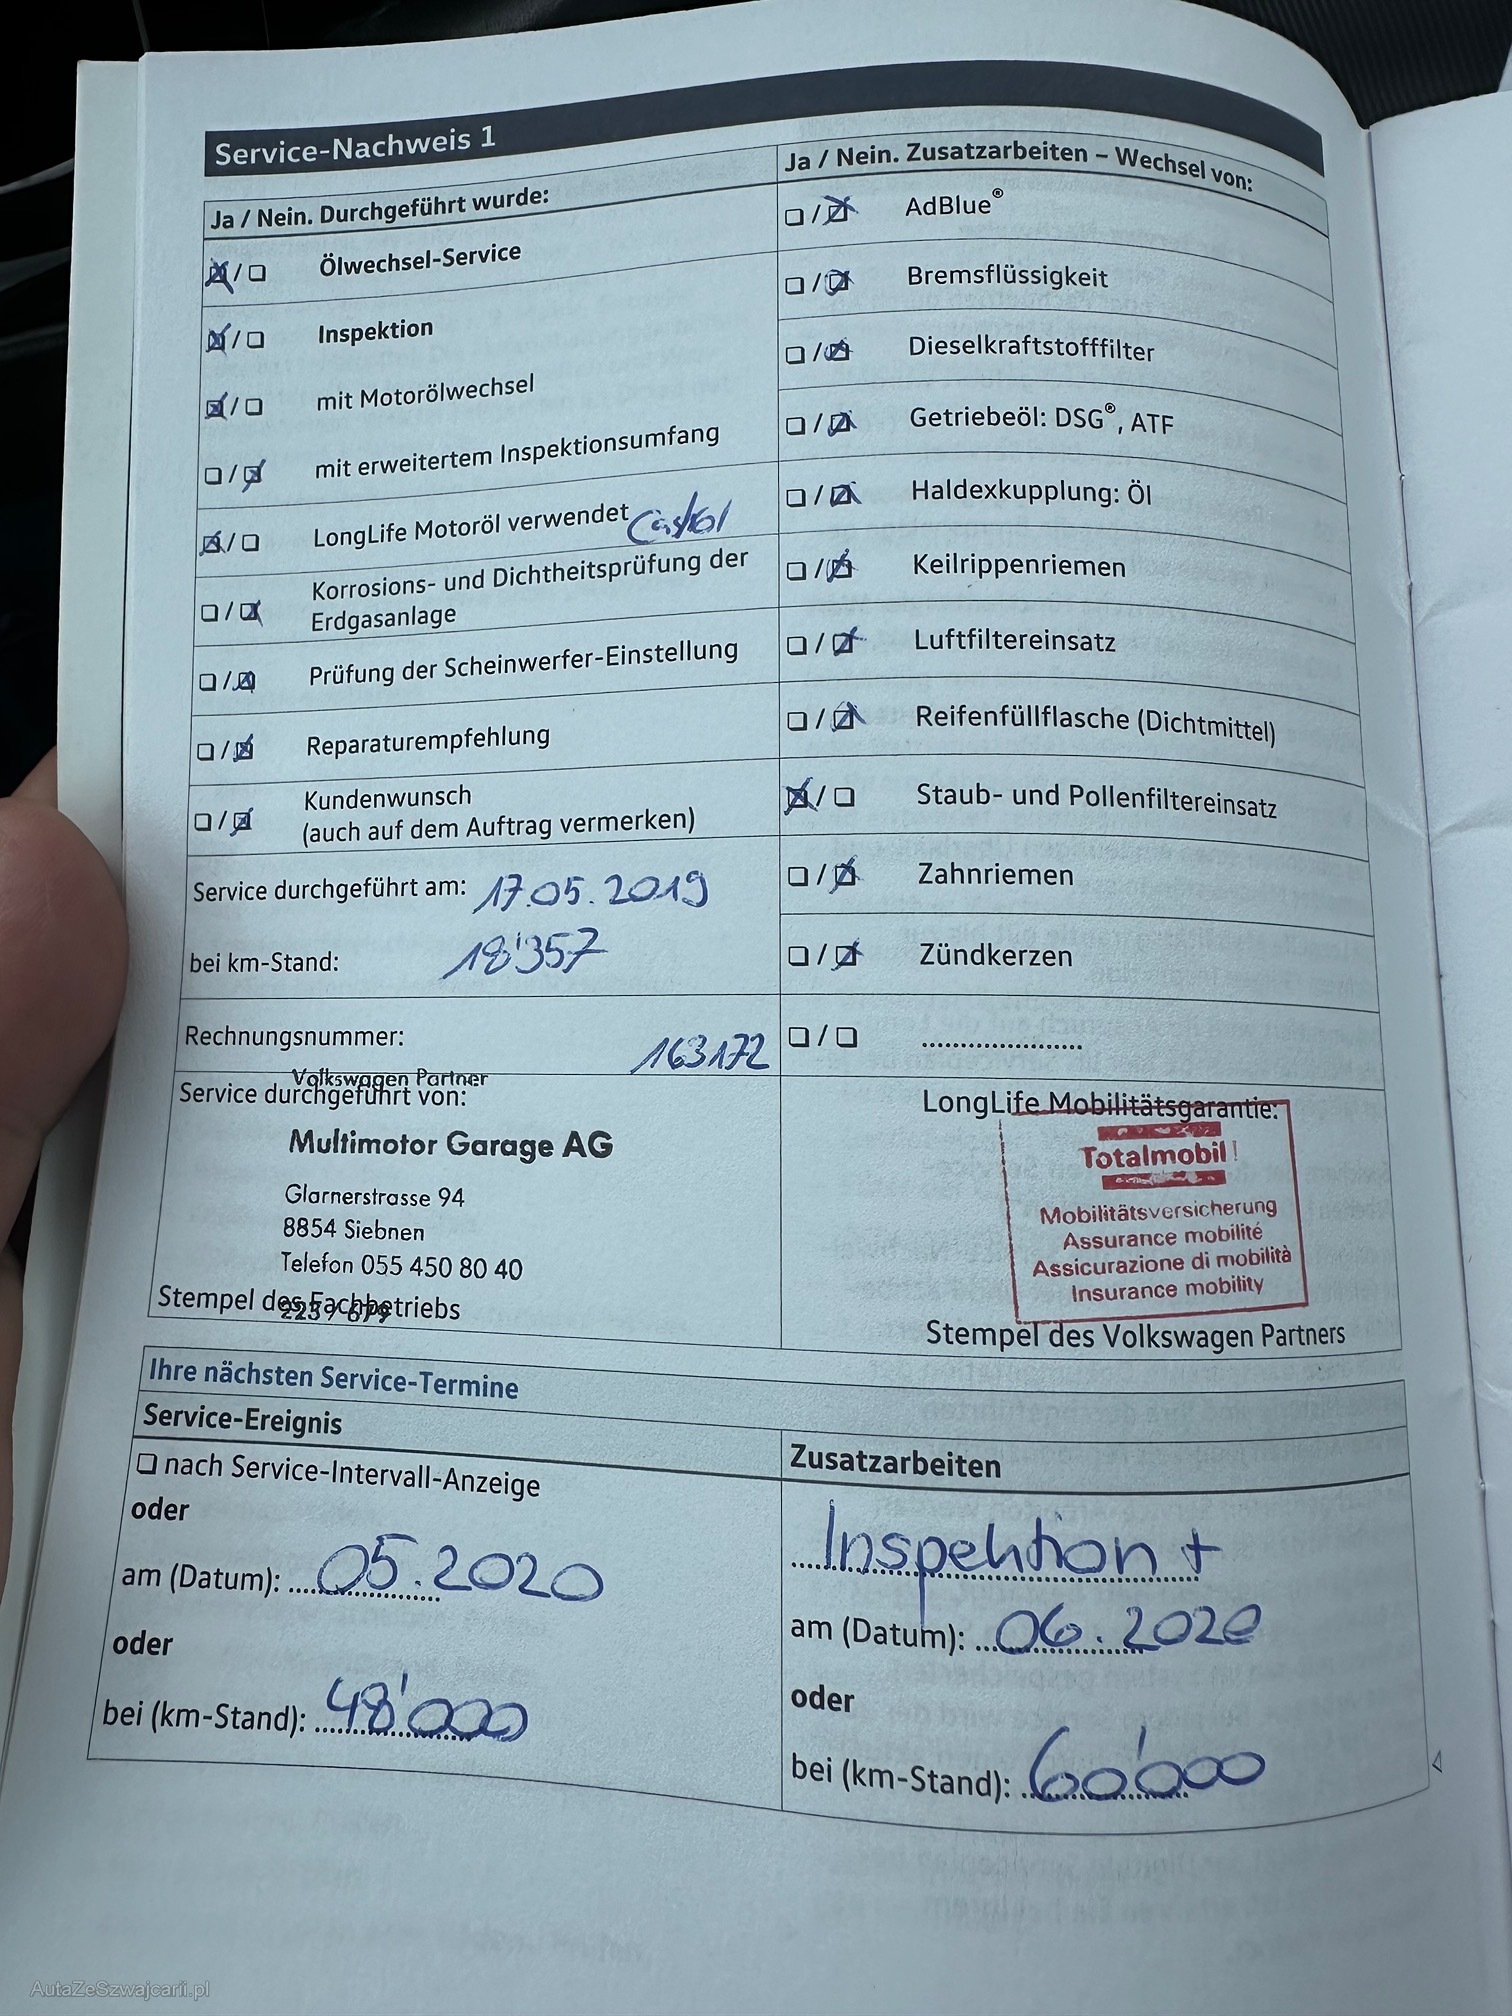 Service-Nachweis 1
Ja / Nein. Durchgeführt wurde:
☒ / ☐ Ölwechsel-Service
☒ / ☐ Inspektion
☒ / ☐ mit Motorölwechsel
☐ / ☒ mit erweitertem Inspektionsumfang
☒ / ☐ LongLife Motoröl verwendet Castrol
☐ / ☒ Korrosions- und Dichtheitsprüfung der
Erdgasanlage
☐ / ☒ Prüfung der Scheinwerfer-Einstellung
☐ / ☒ Reparaturempfehlung
☐ / ☒ Kundenwunsch
(auch auf dem Auftrag vermerken)
Service durchgeführt am: 17.05.2019
bei km-Stand: 18'357
Rechnungsnummer: 163172
Service durchgeführt von:
Volkswagen Partner
Multimotor Garage AG
Glarnerstrasse 94
8854 Siebnen
Telefon 055 450 80 40
223 / 679
Stempel des Fachbetriebs
Ja / Nein. Zusatzarbeiten – Wechsel von:
☐ / ☒ AdBlue®
☐ / ☒ Bremsflüssigkeit
☐ / ☒ Dieselkraftstofffilter
☐ / ☒ Getriebeöl: DSG®, ATF
☐ / ☒ Haldexkupplung: Öl
☐ / ☒ Keilrippenriemen
☐ / ☒ Luftfiltereinsatz
☐ / ☒ Reifenfüllflasche (Dichtmittel)
☒ / ☐ Staub- und Pollenfiltereinsatz
☐ / ☒ Zahnriemen
☐ / ☒ Zündkerzen
☐ / ☐ ........................
LongLife Mobilitätsgarantie:
Totalmobil!
Mobilitätsversicherung
Assurance mobilité
Assicurazione di mobilità
Insurance mobility
Stempel des Volkswagen Partners
Ihre nächsten Service-Termine
Service-Ereignis
☐ nach Service-Intervall-Anzeige
oder
am (Datum): 05.2020
oder
bei (km-Stand): 48'000
Zusatzarbeiten
Inspektion +
am (Datum): 06.2020
oder
bei (km-Stand): 60'000
AutaZeSzwajcarii.pl